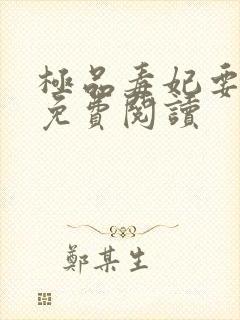 極品毒妃要
免費閱讀
鄭某生